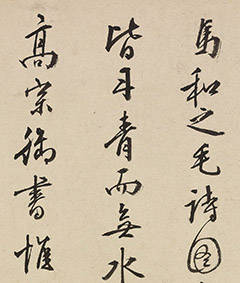 馬和之毛詩圖
皆丹青而無水
高宗稱書惟